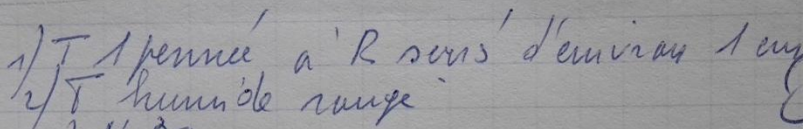 1) T 1 penneé à R serré d'environ 1 cm
2) T humide rouge